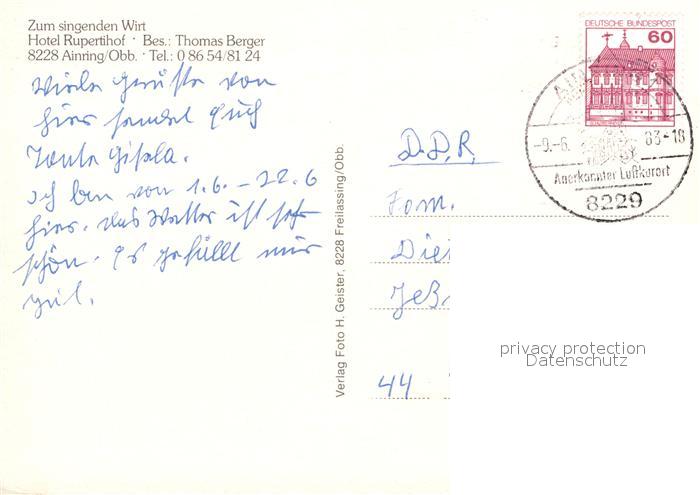 Zum singenden Wirt
Hotel Rupertihof · Bes.: Thomas Berger
8228 Ainring/Obb. · Tel.: 0 86 54/81 24
Viele Grüße von
hier sendet Euch
Tante Gisela.
Ich bin von 1.6. – 22.6
hier. Das Wetter ist sehr
schön. Es gefällt mir
gut.
Verlag Foto H. Geister, 8228 Freilassing/Obb.
DEUTSCHE BUNDESPOST
60
-9.-6. 83-18
Anerkannter Luftkurort
8229
D.D.R.
Fam.
44
privacy protection
Datenschutz